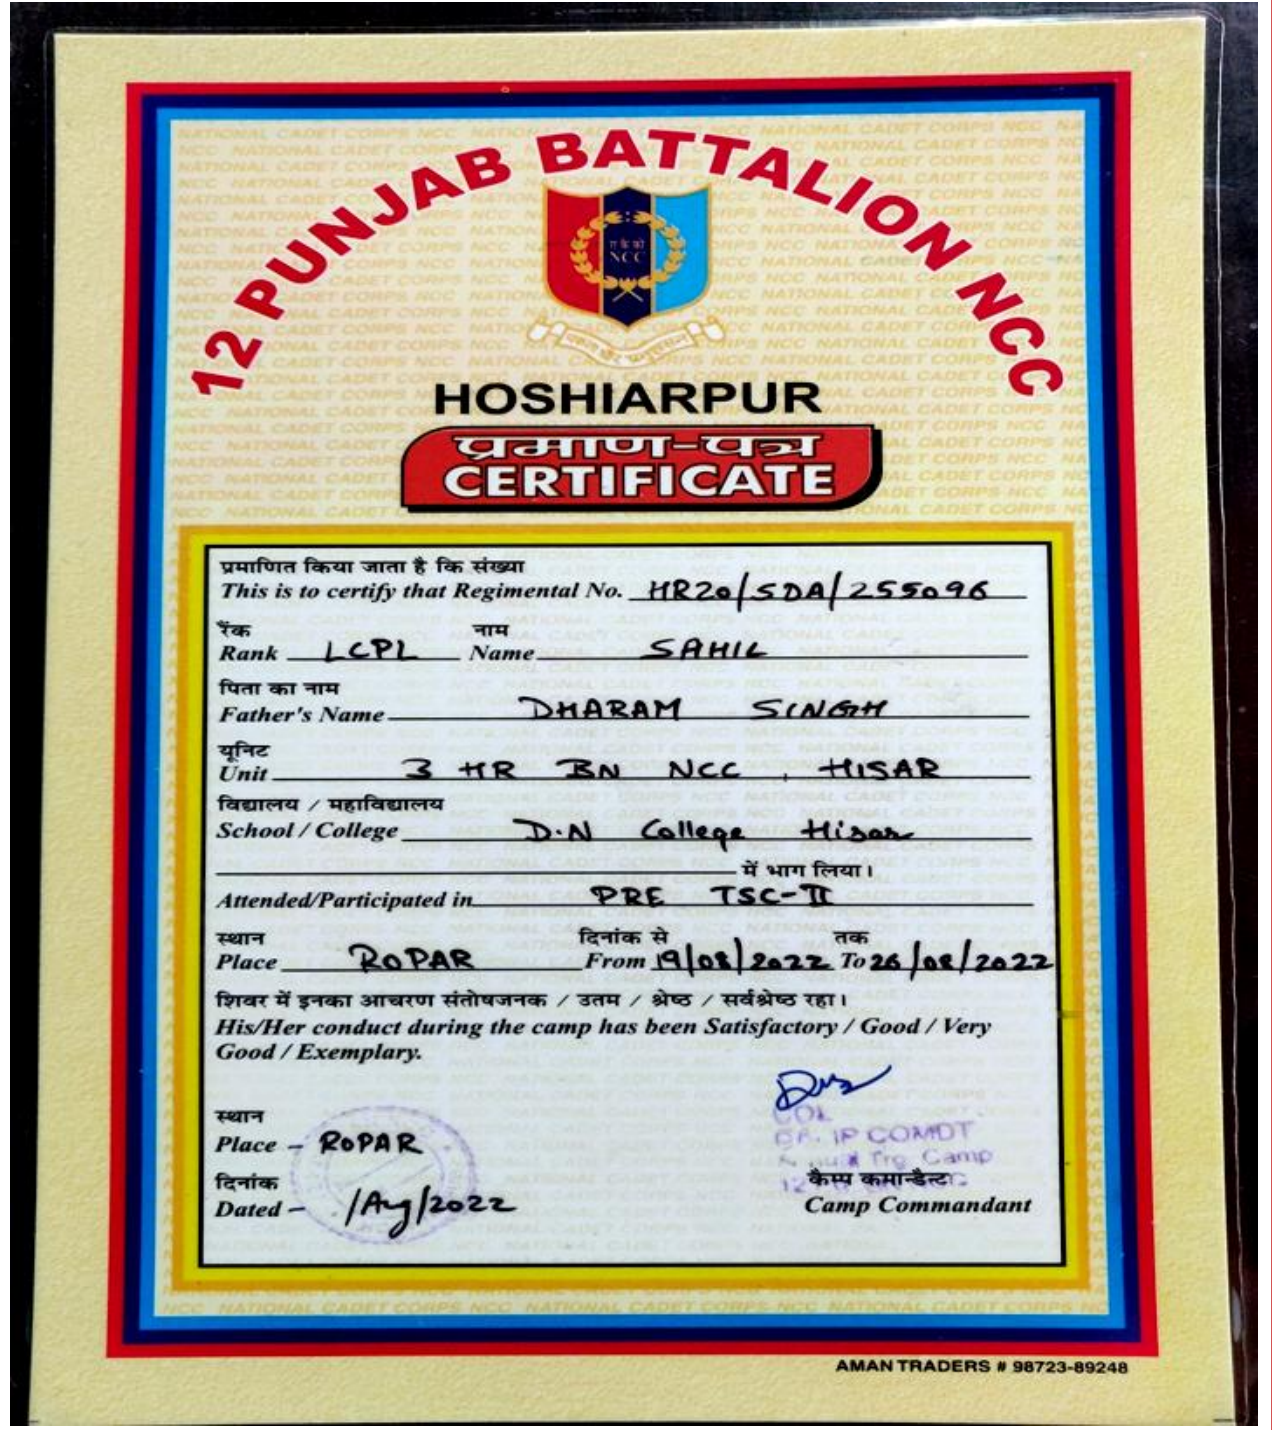 12 PUNJAB BATTALION NCC
NCC
HOSHIARPUR
प्रमाण-पत्र
CERTIFICATE
प्रमाणित किया जाता है कि संख्या
This is to certify that Regimental No. HR20/SDA/255096
रैंक नाम
Rank LCPL Name SAHIL
पिता का नाम
Father's Name DHARAM SINGH
यूनिट
Unit 3 HR BN NCC, HISAR
विद्यालय / महाविद्यालय
School / College D.N College Hisar
में भाग लिया।
Attended/Participated in PRE TSC-II
स्थान दिनांक से तक
Place ROPAR From 19/08/2022 To 26/08/2022
शिवर में इनका आचरण संतोषजनक / उतम / श्रेष्ठ / सर्वश्रेष्ठ रहा।
His/Her conduct during the camp has been Satisfactory / Good / Very
Good / Exemplary.
COL
COMDT
Trg. Camp
स्थान
Place - ROPAR
दिनांक
कैम्प कमान्डैन्ट
Dated - /Aug/2022
Camp Commandant
AMAN TRADERS # 98723-89248